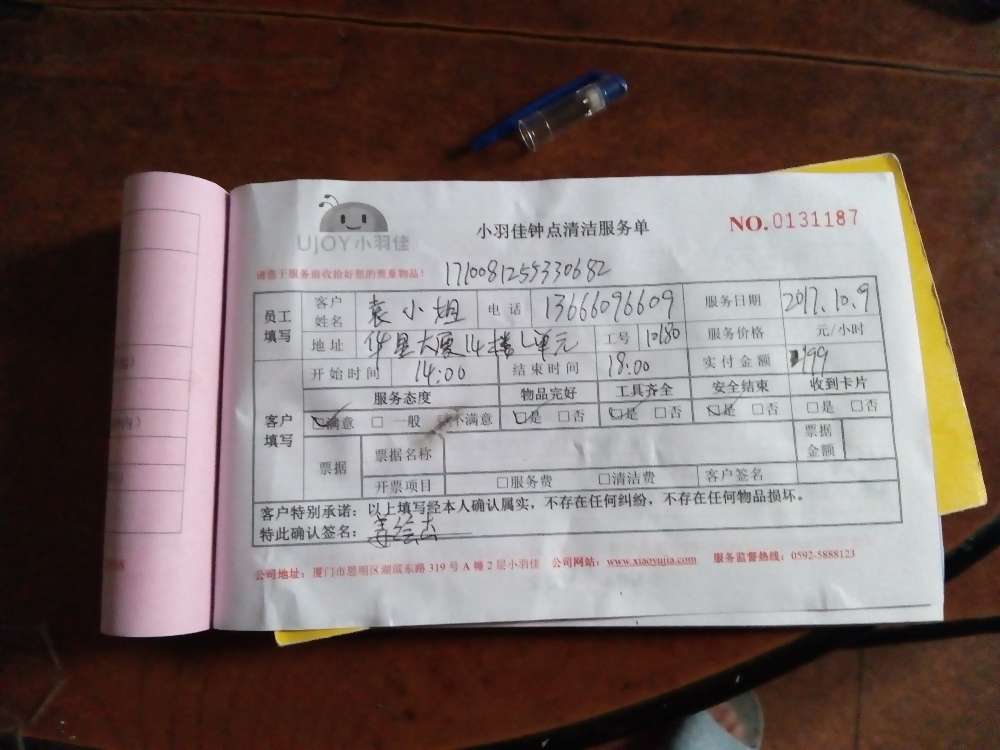 UJOY小羽佳
小羽佳钟点清洁服务单
NO.0131187
请您于服务前收拾好您的贵重物品!
1710081255330682
员工填写 客户姓名 袁小姐 电话 13666096609 服务日期 2017.10.9
地址 华星大厦14楼L单元 工号 10180 服务价格 元/小时
开始时间 14:00 结束时间 18:00 实付金额 199
客户填写 服务态度 物品完好 工具齐全 安全结束 收到卡片
□满意 □一般 不满意 □是 □否 □是 □否 □是 □否 □是 □否
票据 票据名称 票据金额
开票项目 □服务费 □清洁费 客户签名
客户特别承诺:以上填写经本人确认属实,不存在任何纠纷,不存在任何物品损坏。
特此确认签名:
公司地址:厦门市思明区湖滨东路 319 号 A 幢 2 层小羽佳 公司网站:www.xiaoyujia.com 服务监督热线:0592-5888123